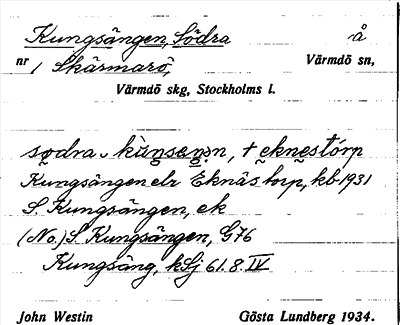 Kungsängen, Södra å
nr 1 Skärmarö, Värmdö sn,
Värmdö skg, Stockholms l.
södra kùŋsæŋən, + eknestórp
Kungsängen elr Eknäs torp, kb 1931
S. Kungsängen, ek
(No.) S. Kungsängen, G76
Kungsäng, kSj 61.8.IV
John Westin Gösta Lundberg 1934.